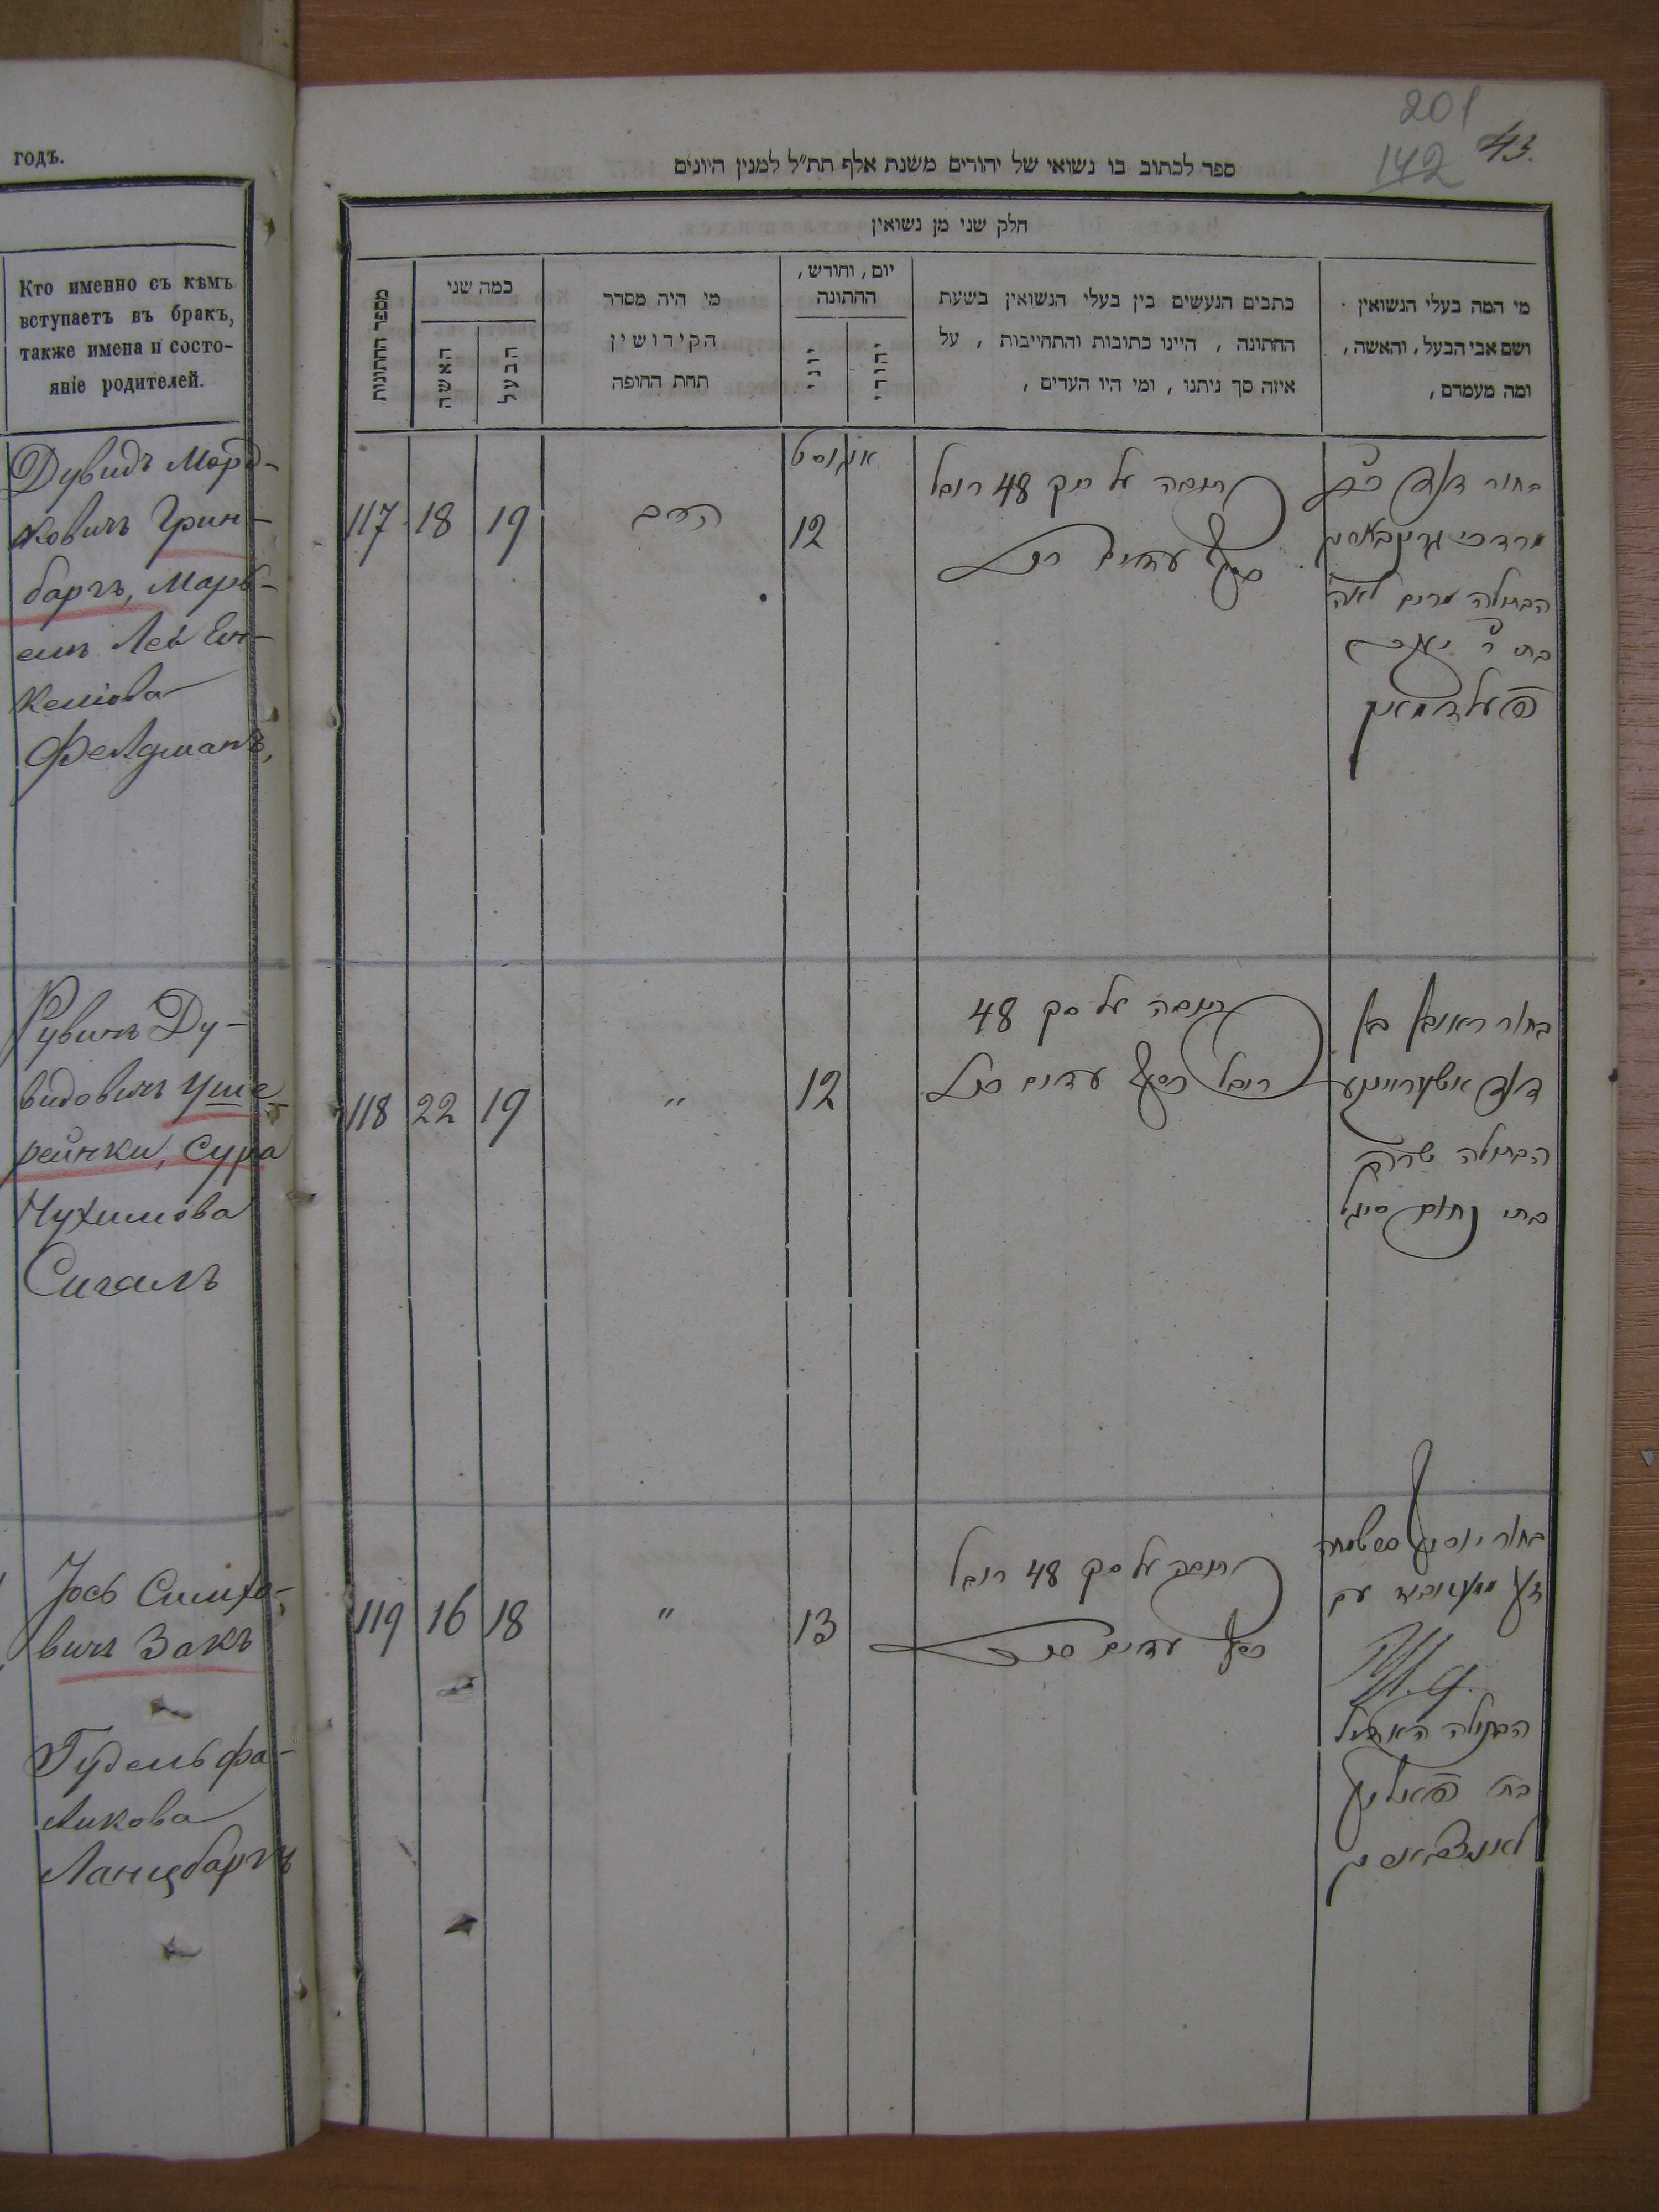 годъ.
Кто именно съ кѣмъ
вступаетъ въ бракъ,
также имена и состо-
яніе родителей.
Дувидъ Морд-
ковичъ Грин-
баргъ, Марь-
емъ Лея
Фельдманъ,
Рувинъ Ду-
видовичъ Уше-
ренки, Сура
Нухимова
Сигалъ
Іось Симхо-
вичъ Закъ
Гудель Фа-
ликова
Ланцбаргъ
201
142
43.
ספר לכתוב בו נשואי של יהודים משנת אלף תת״ל למנין היונים
חלק שני מן נשואין
מספר החתונות
כמה שני
האשה
הבעל
מי היה מסדר
הקידושין
תחת החופה
יום, וחודש,
החתונה
יוני
יהודי
כתבים הנעשים בין בעלי הנשואין בשעת
החתונה , היינו כתובות והתחייבות , על
איזה סך ניתנו , ומי היו העדים ,
מי המה בעלי הנשואין
ושם אבי הבעל, והאשה,
ומה מעמדם ,
117 18 19 הרב
אוגוסט
12
כתובה על סך 48 רובל
כסף עדים
בחור דוד בן
מרדכי גרינבארג
הבתולה מרים לאה
בת ר׳
פעלדמאן
118 22 19 " 12
כתובה על סך 48
רובל כסף עדים
בחור ראובן בן
דוד
הבתולה שרה
בת נחום סיגל
119 16 18 " 13
כתובה על סך 48 רובל
כסף עדים
בחור יוסף
הבתולה
בת פאליק
לאנצבארג